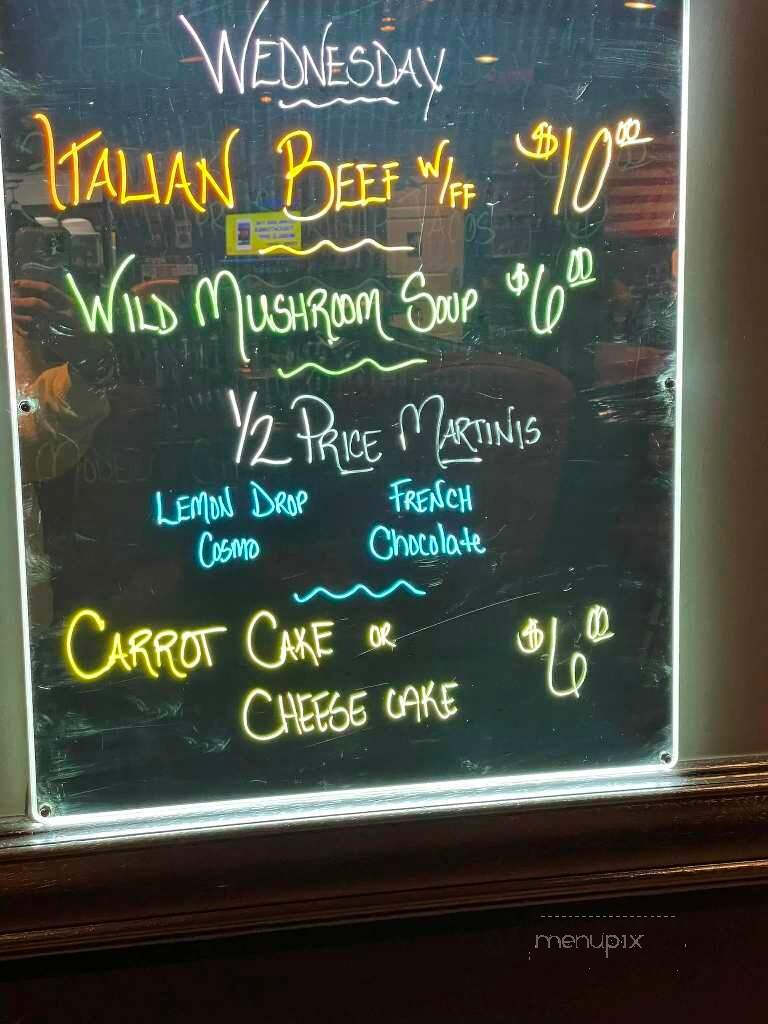 WEDNESDAY
ITALIAN BEEF W/FF $10.00
WILD MUSHROOM SOUP $6.00
1/2 PRICE MARTINIS
LEMON DROP FRENCH
COSMO Chocolate
CARROT CAKE OR $6.00
CHEESE CAKE
menupix